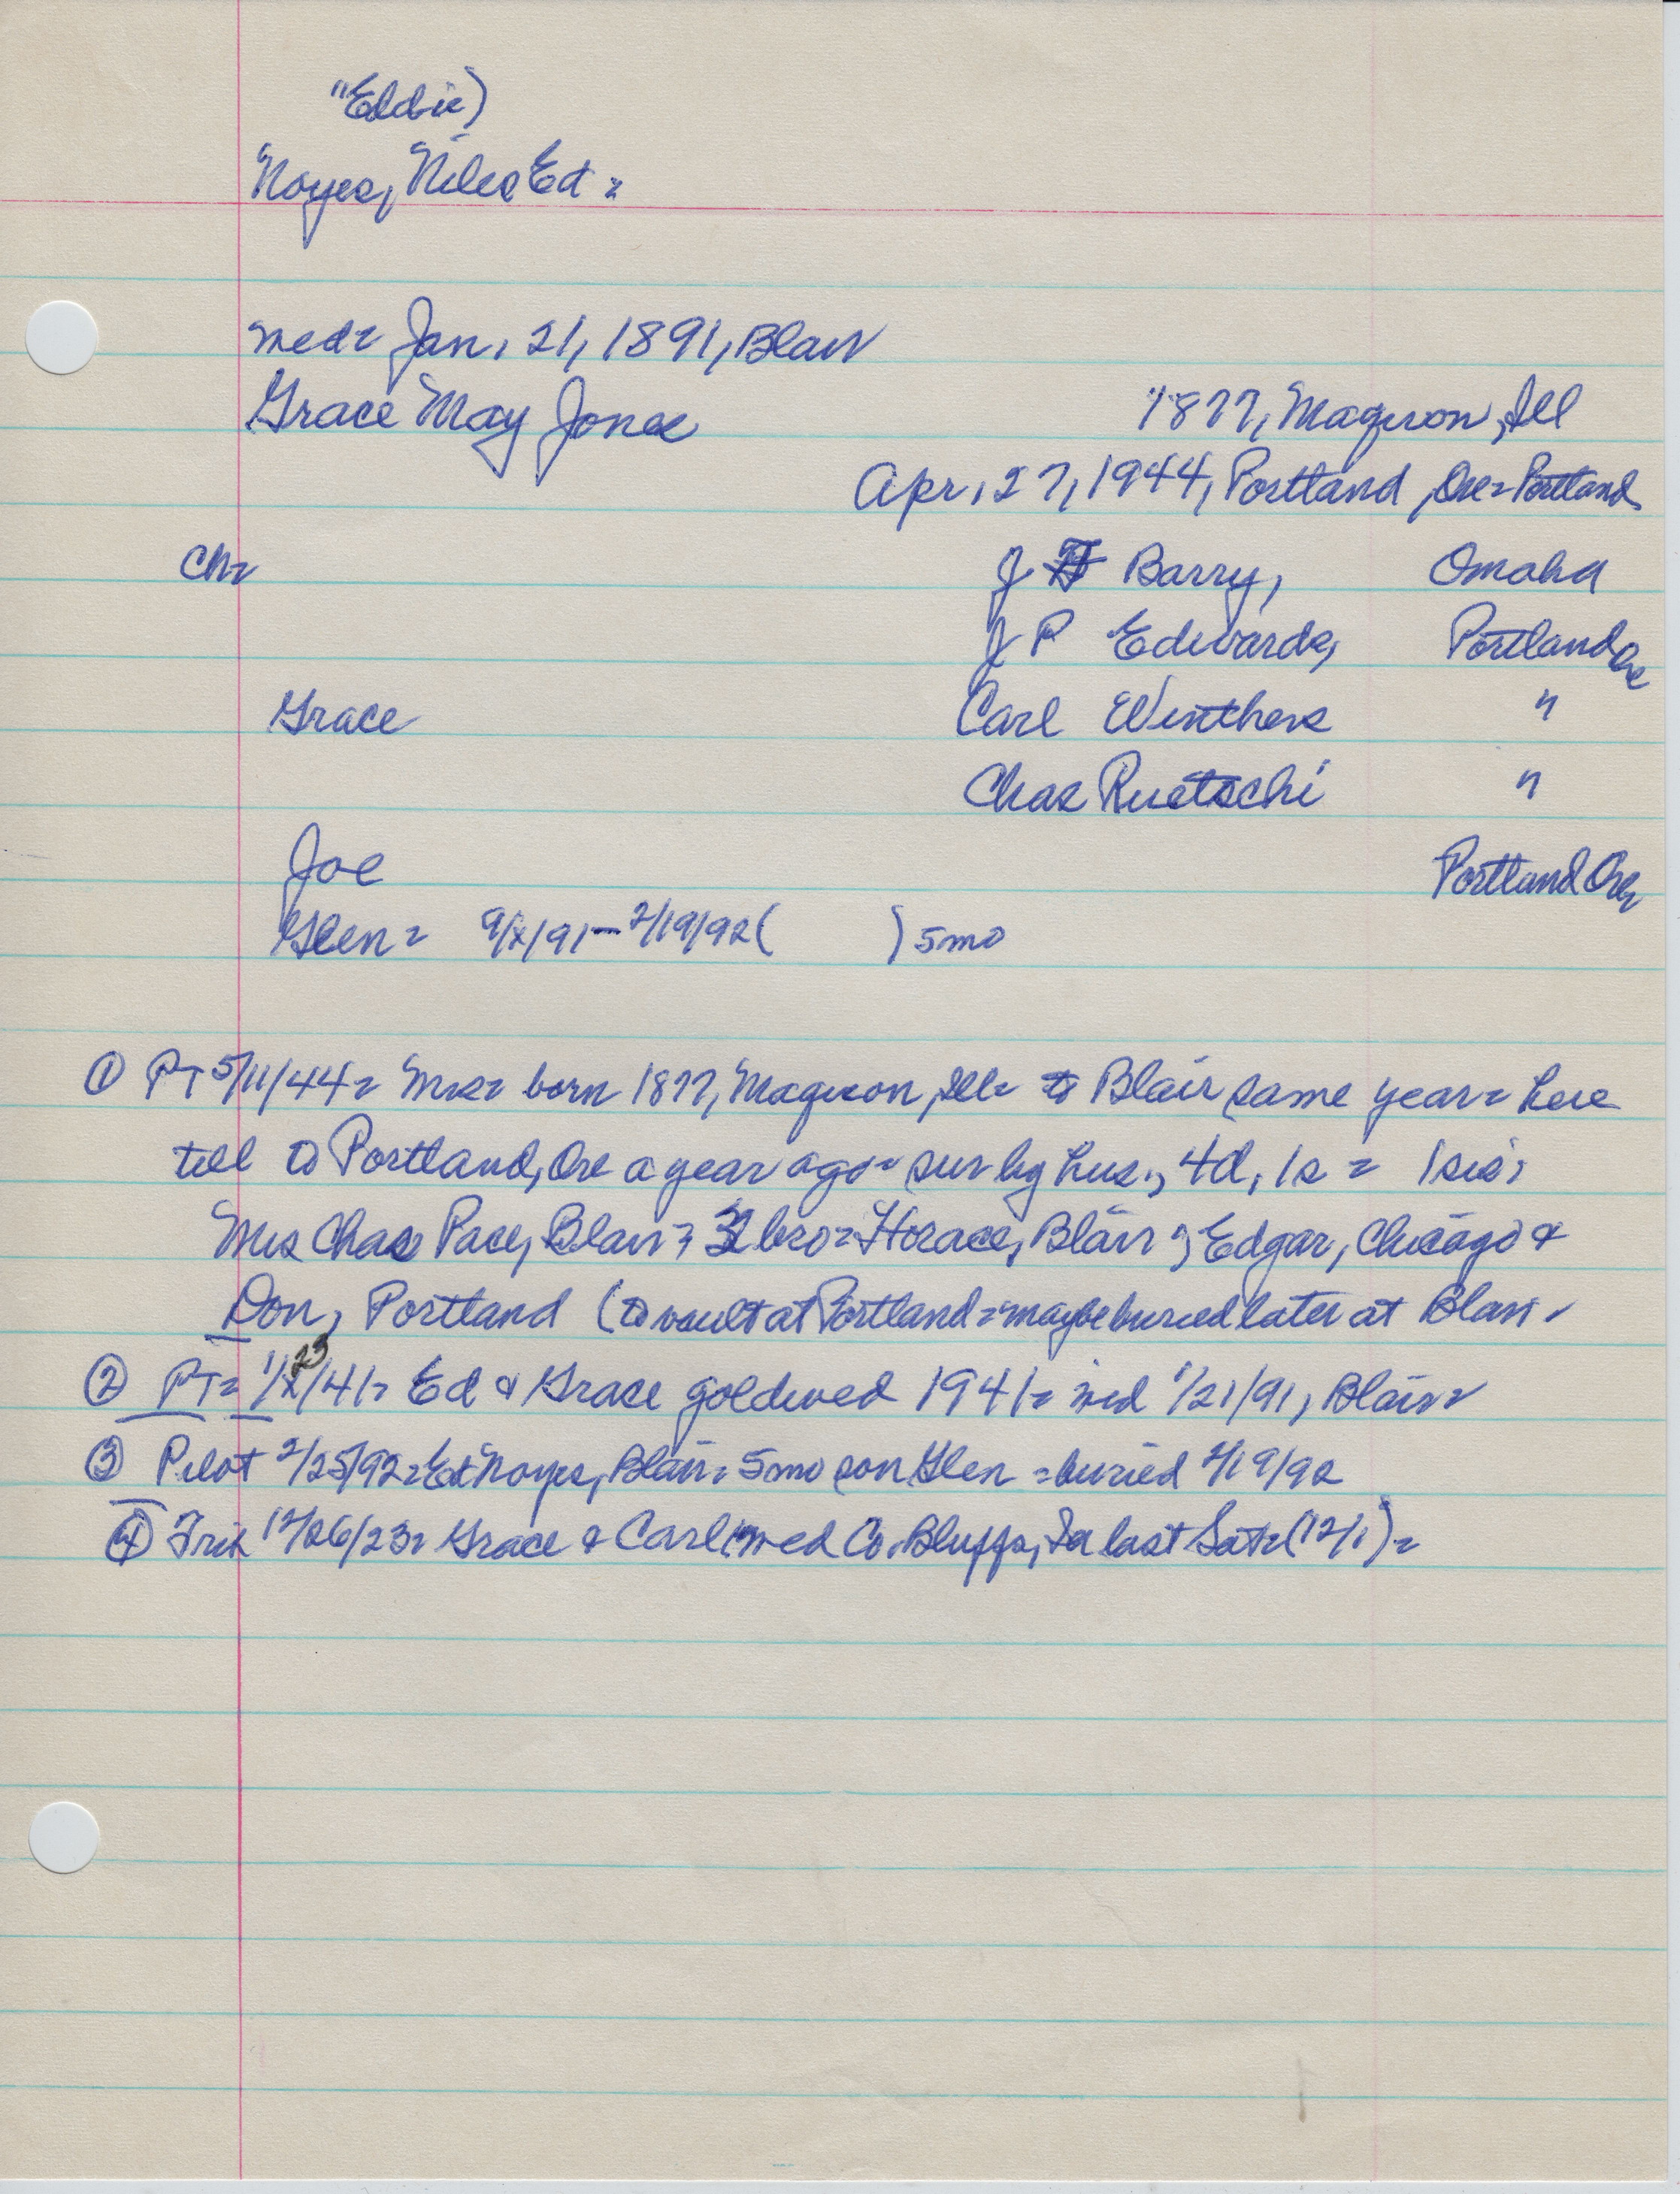 "Eddie)
Noyes, Niles Ed =
med= Jan. 21, 1891, Blair
Grace May Jones 1877, Maquon, Ill
Apr. 27, 1944, Portland, Ore= Portland
Ch= J Barry, Omaha
J P Edwards, Portland Ore
Grace Carl Winthers "
Chas Ruetschi "
Joe Portland Ore
Glen= 9/x/91—2/19/92 ( ) 5mo
① PT 5/11/44= Mrs= born 1877, Maquon, Ill= to Blair same year= here
till to Portland, Ore a year ago= sur by hus., 4d, 1s = 1 sis,
Mrs Chas Pace, Blair; 3 bro= Horace, Blair; Edgar, Chicago &
Don, Portland (to vault at Portland= maybe buried later at Blair.
② PT= 1/23/41= Ed & Grace goldwed 1941= med 1/21/91, Blair=
③ Pilot 2/25/92= Ed Noyes, Blair= 5mo son Glen =buried 2/19/92
④ Trib 12/26/23= Grace & Carl med Co. Bluffs, Ia last Sat= (12/1)=